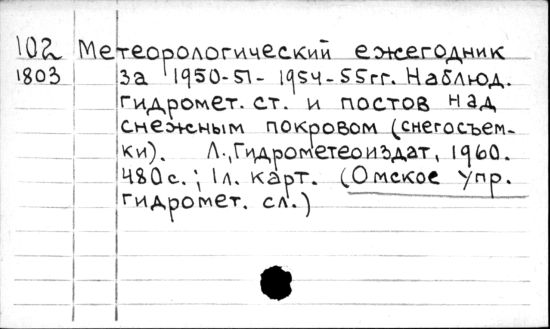 102 Метеорологический ежегодник
1803 за 1950-51-1954-55гг. Наблюд.
гидромет. ст. и постов над
снежным покровом (снегосъем-
ки). Л., Гидрометеоиздат, 1960.
480с.; 1л. карт. (Омское упр.
гидромет. сл.)